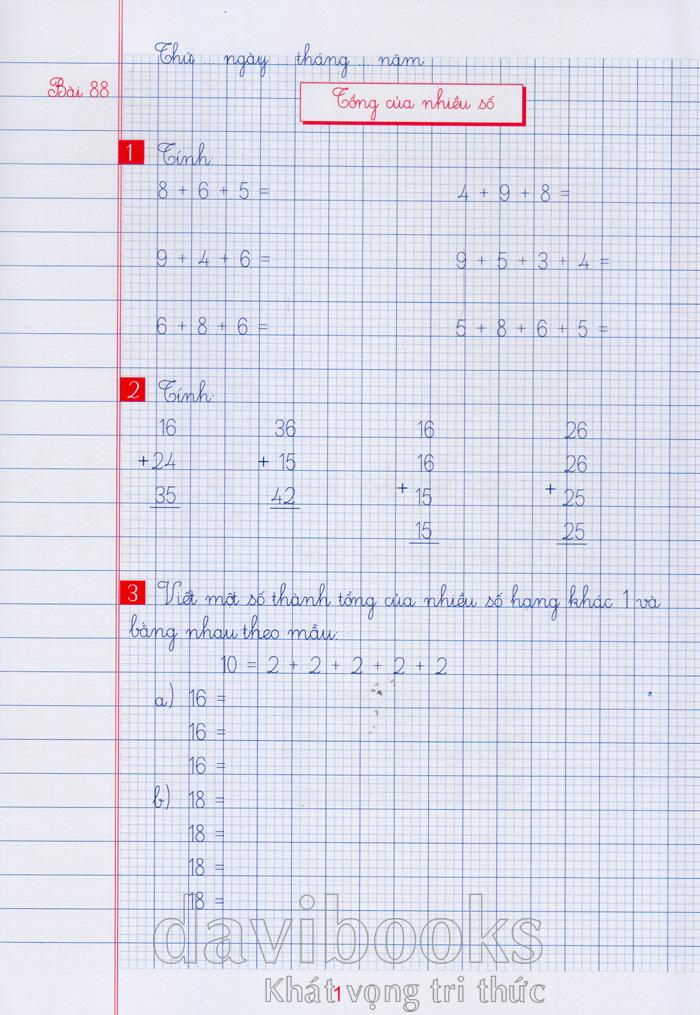 Thứ ngày tháng năm
Bài 88
Tổng của nhiều số
1 Tính:
8 + 6 + 5 = 4 + 9 + 8 =
9 + 4 + 6 = 9 + 5 + 3 + 4 =
6 + 8 + 6 = 5 + 8 + 6 + 5 =
2 Tính:
16 36 16 26
+ 24 + 15 16 26
35 42 + 15 + 25
15 25
3 Viết một số thành tổng của nhiều số hạng khác 1 và
bằng nhau theo mẫu:
10 = 2 + 2 + 2 + 2 + 2
a) 16 =
16 =
16 =
b) 18 =
18 =
18 =
18 =
davibooks
Khát vọng tri thức
1